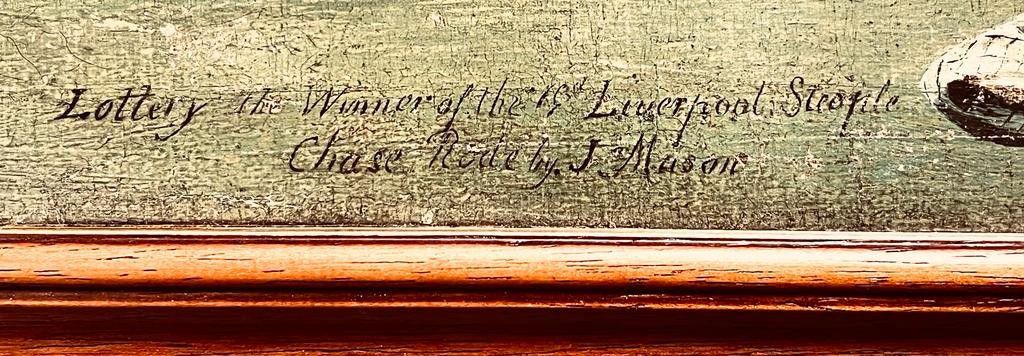 Lottery the Winner of the 1st Liverpool Steeple
Chase Rode by J Mason